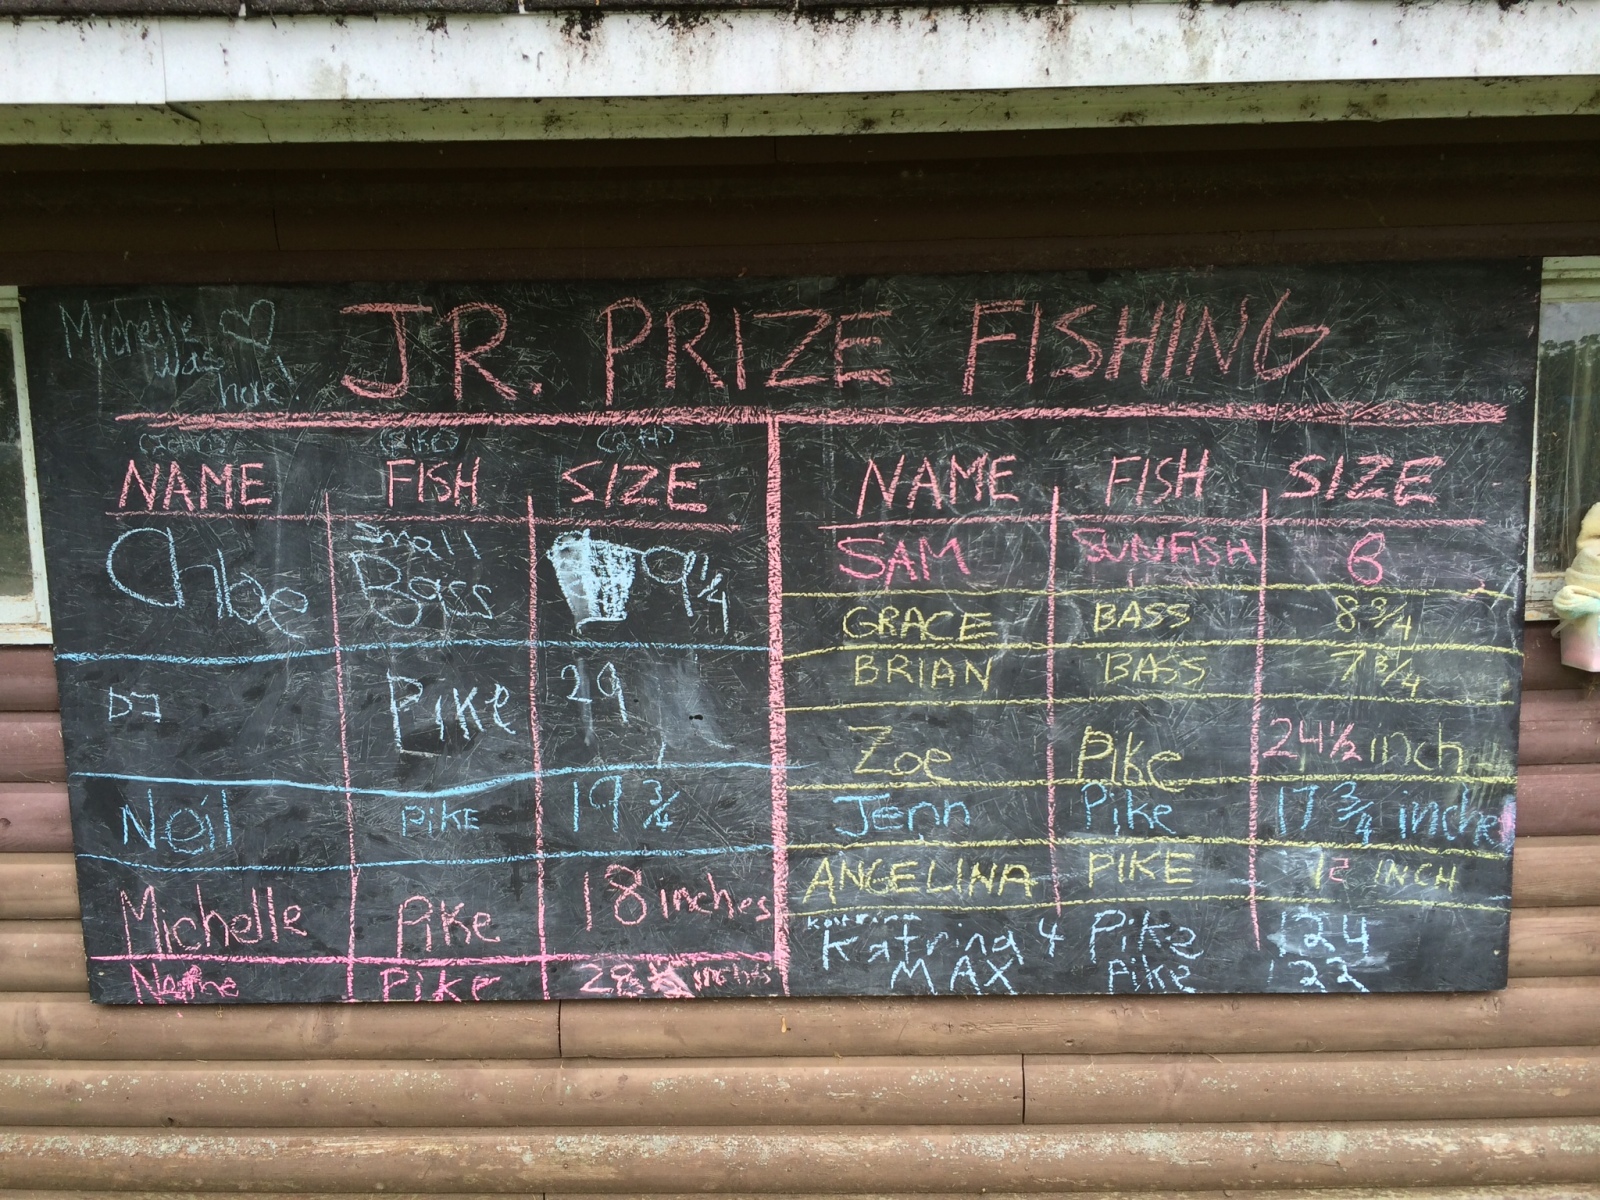 Michelle
was
here!
JR. PRIZE FISHING
NAME FISH SIZE
Chloe Small Bass 9 1/4
DJ Pike 29
Neil PiKE 19 3/4
Michelle Pike 18 inches
Pike 28 inches
NAME FISH SIZE
SAM SUNFISH 6
GRACE BASS 8 3/4
BRIAN BASS 7 3/4
Zoe Pike 24 1/2 inch
Jenn Pike 17 3/4 inches
ANGELINA PIKE 12 INCH
Katrina 4 Pike 24
MAX Pike 22